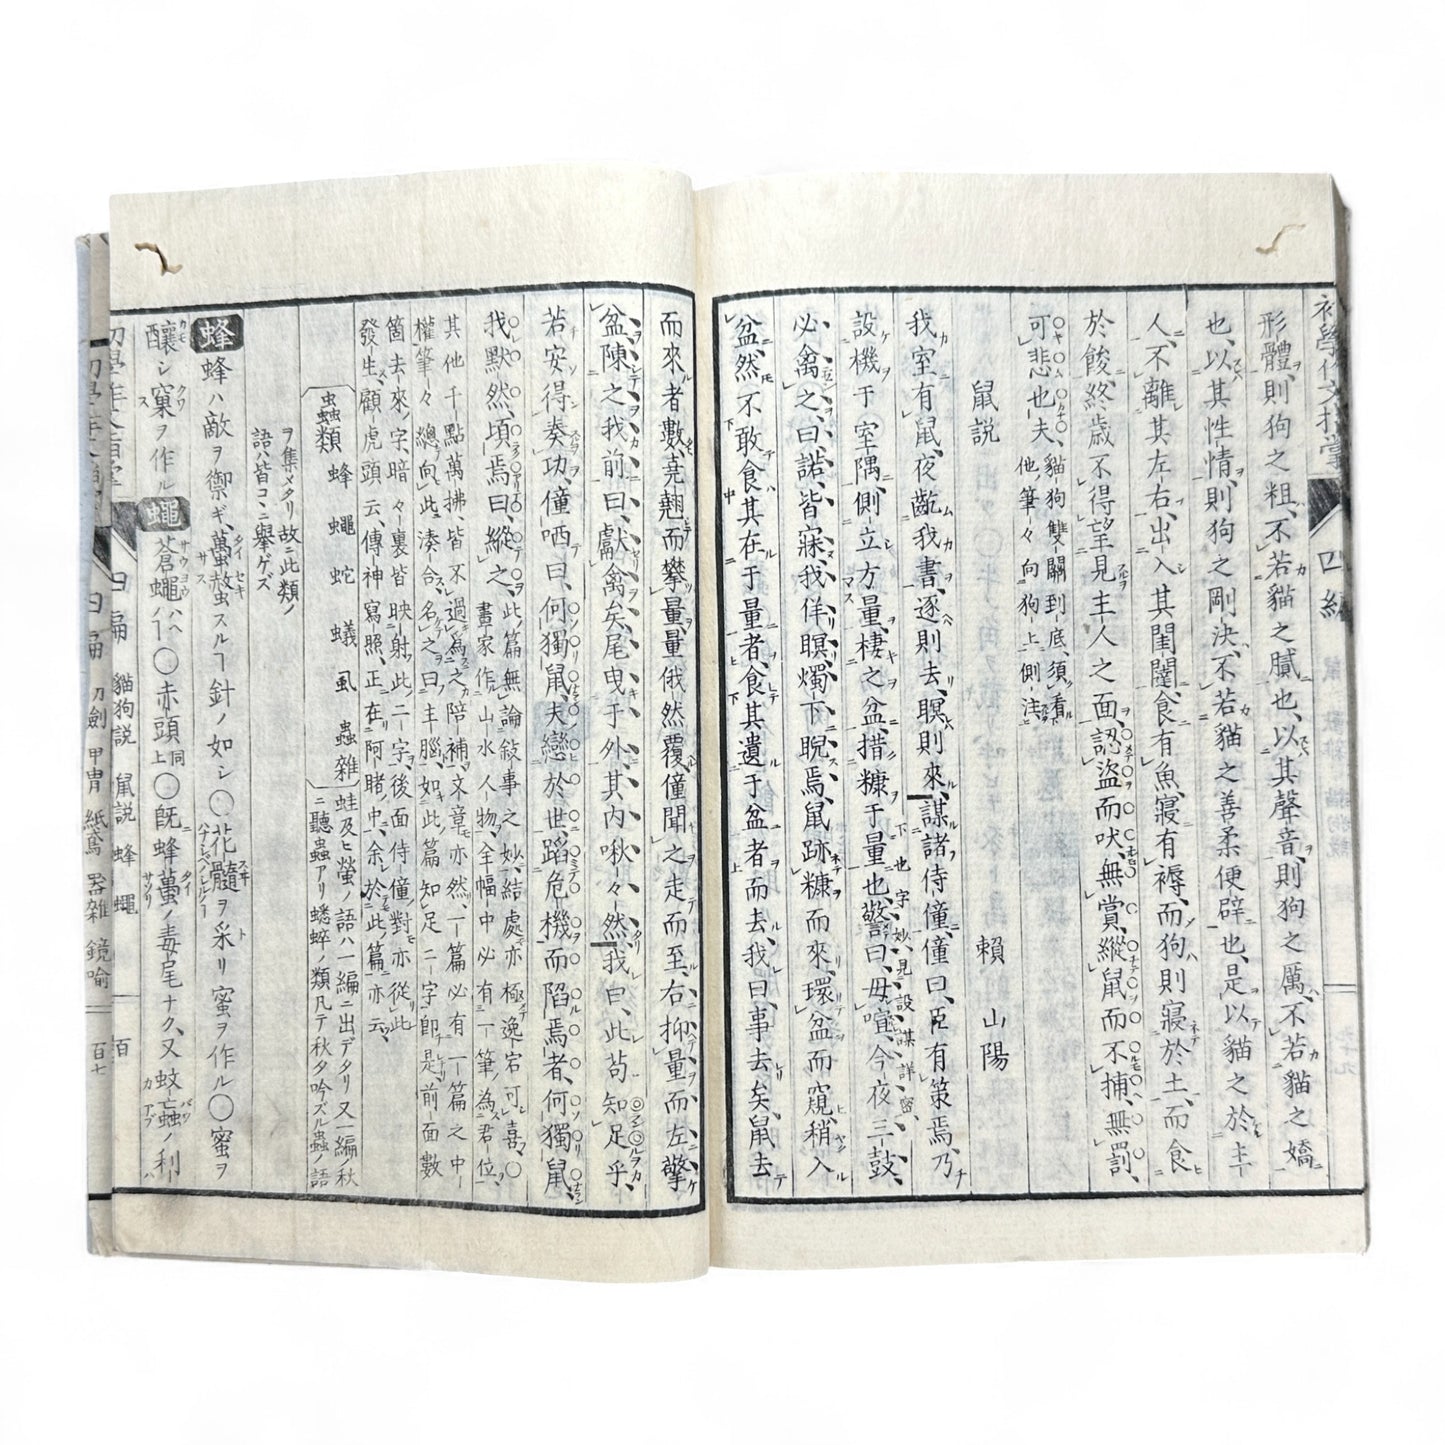 初學作文指掌 四編
形體則狗之粗、不若貓之膩也、以其聲音則狗之厲、不若貓之嬌
也、以其性情、則狗之剛決、不若貓之善柔便辟也、是以貓之於主
人、不離其左右、出入其閨闥、食有魚、寢有褥、而狗則寢於土、而食
於餕、終歲不得望見主人之面、認盜而吠、無賞、縱鼠而不捕、無罰、
可悲也夫、貓狗雙關到底、須看
他筆々向狗上側注
鼠説 賴山陽
我室有鼠、夜齕我書、逐則去、瞑則來、謀諸侍僮、僮曰、臣有策焉、乃
設機于室隅、側立方量、棲之盆、措糠于量也、警曰、毋喧、今夜三鼓、
也字妙、見設謀詳密
必禽之、曰諾、皆寐、我佯瞑燭下睨焉、鼠跡糠而來、環盆而窺、稍入
盆、然不敢食其在于量者、食其遺于盆者而去、我曰、事去矣、鼠去
而來者數、堯翹而攀量、量俄然覆、僮聞之走而至、右抑量而左擎
盆、陳之我前、曰、獻禽矣、尾曳于外、其内啾々然、我曰、此苟知足乎、
若安得奏功、僮哂曰、何獨鼠、夫戀於世、蹈危機而陷焉者、何獨鼠、
我默然、頃焉曰、縱之、此篇無論敍事之妙、結處亦極逸宕可喜、○
畫家作山水人物、全幅中必有一筆為君位、
其他千點萬拂、皆不過為之陪補、文章亦然、一篇必有一篇之中
權筆々總向此湊合、名之曰主腦、如此篇知足二字即是、前面數
箇去來字、暗々裏皆映射此二字、後面侍僮對亦從此
發生、顧虎頭云、傳神寫照、正在阿睹中、余於此篇亦云、
蟲類 蜂 蠅 蛇 蟻 虱 蟲雜
蛙及ヒ螢ノ語ハ一編ニ出デタリ又一編ノ秋
ニ聽蟲アリ蟋蟀ノ類凡テ秋夕吟ズル蟲ノ語
ヲ集メタリ故ニ此類ノ
語ハ皆コヽニ擧ゲズ
蜂 蜂ハ敵ヲ禦ギ、蠆螫スルヿ針ノ如シ○花髓ヲ采リ蜜ヲ作ル○蜜ヲ
釀シ窠ヲ作ル 蠅 蒼蠅ハ○赤頭上同○既蜂蠆ノ毒尾ナク、又蚊䖟ノ利
四編 貓狗説 鼠説 蜂 蠅 百
四編 刀劍 甲冑 紙鳶 器雜 鏡喻 百七